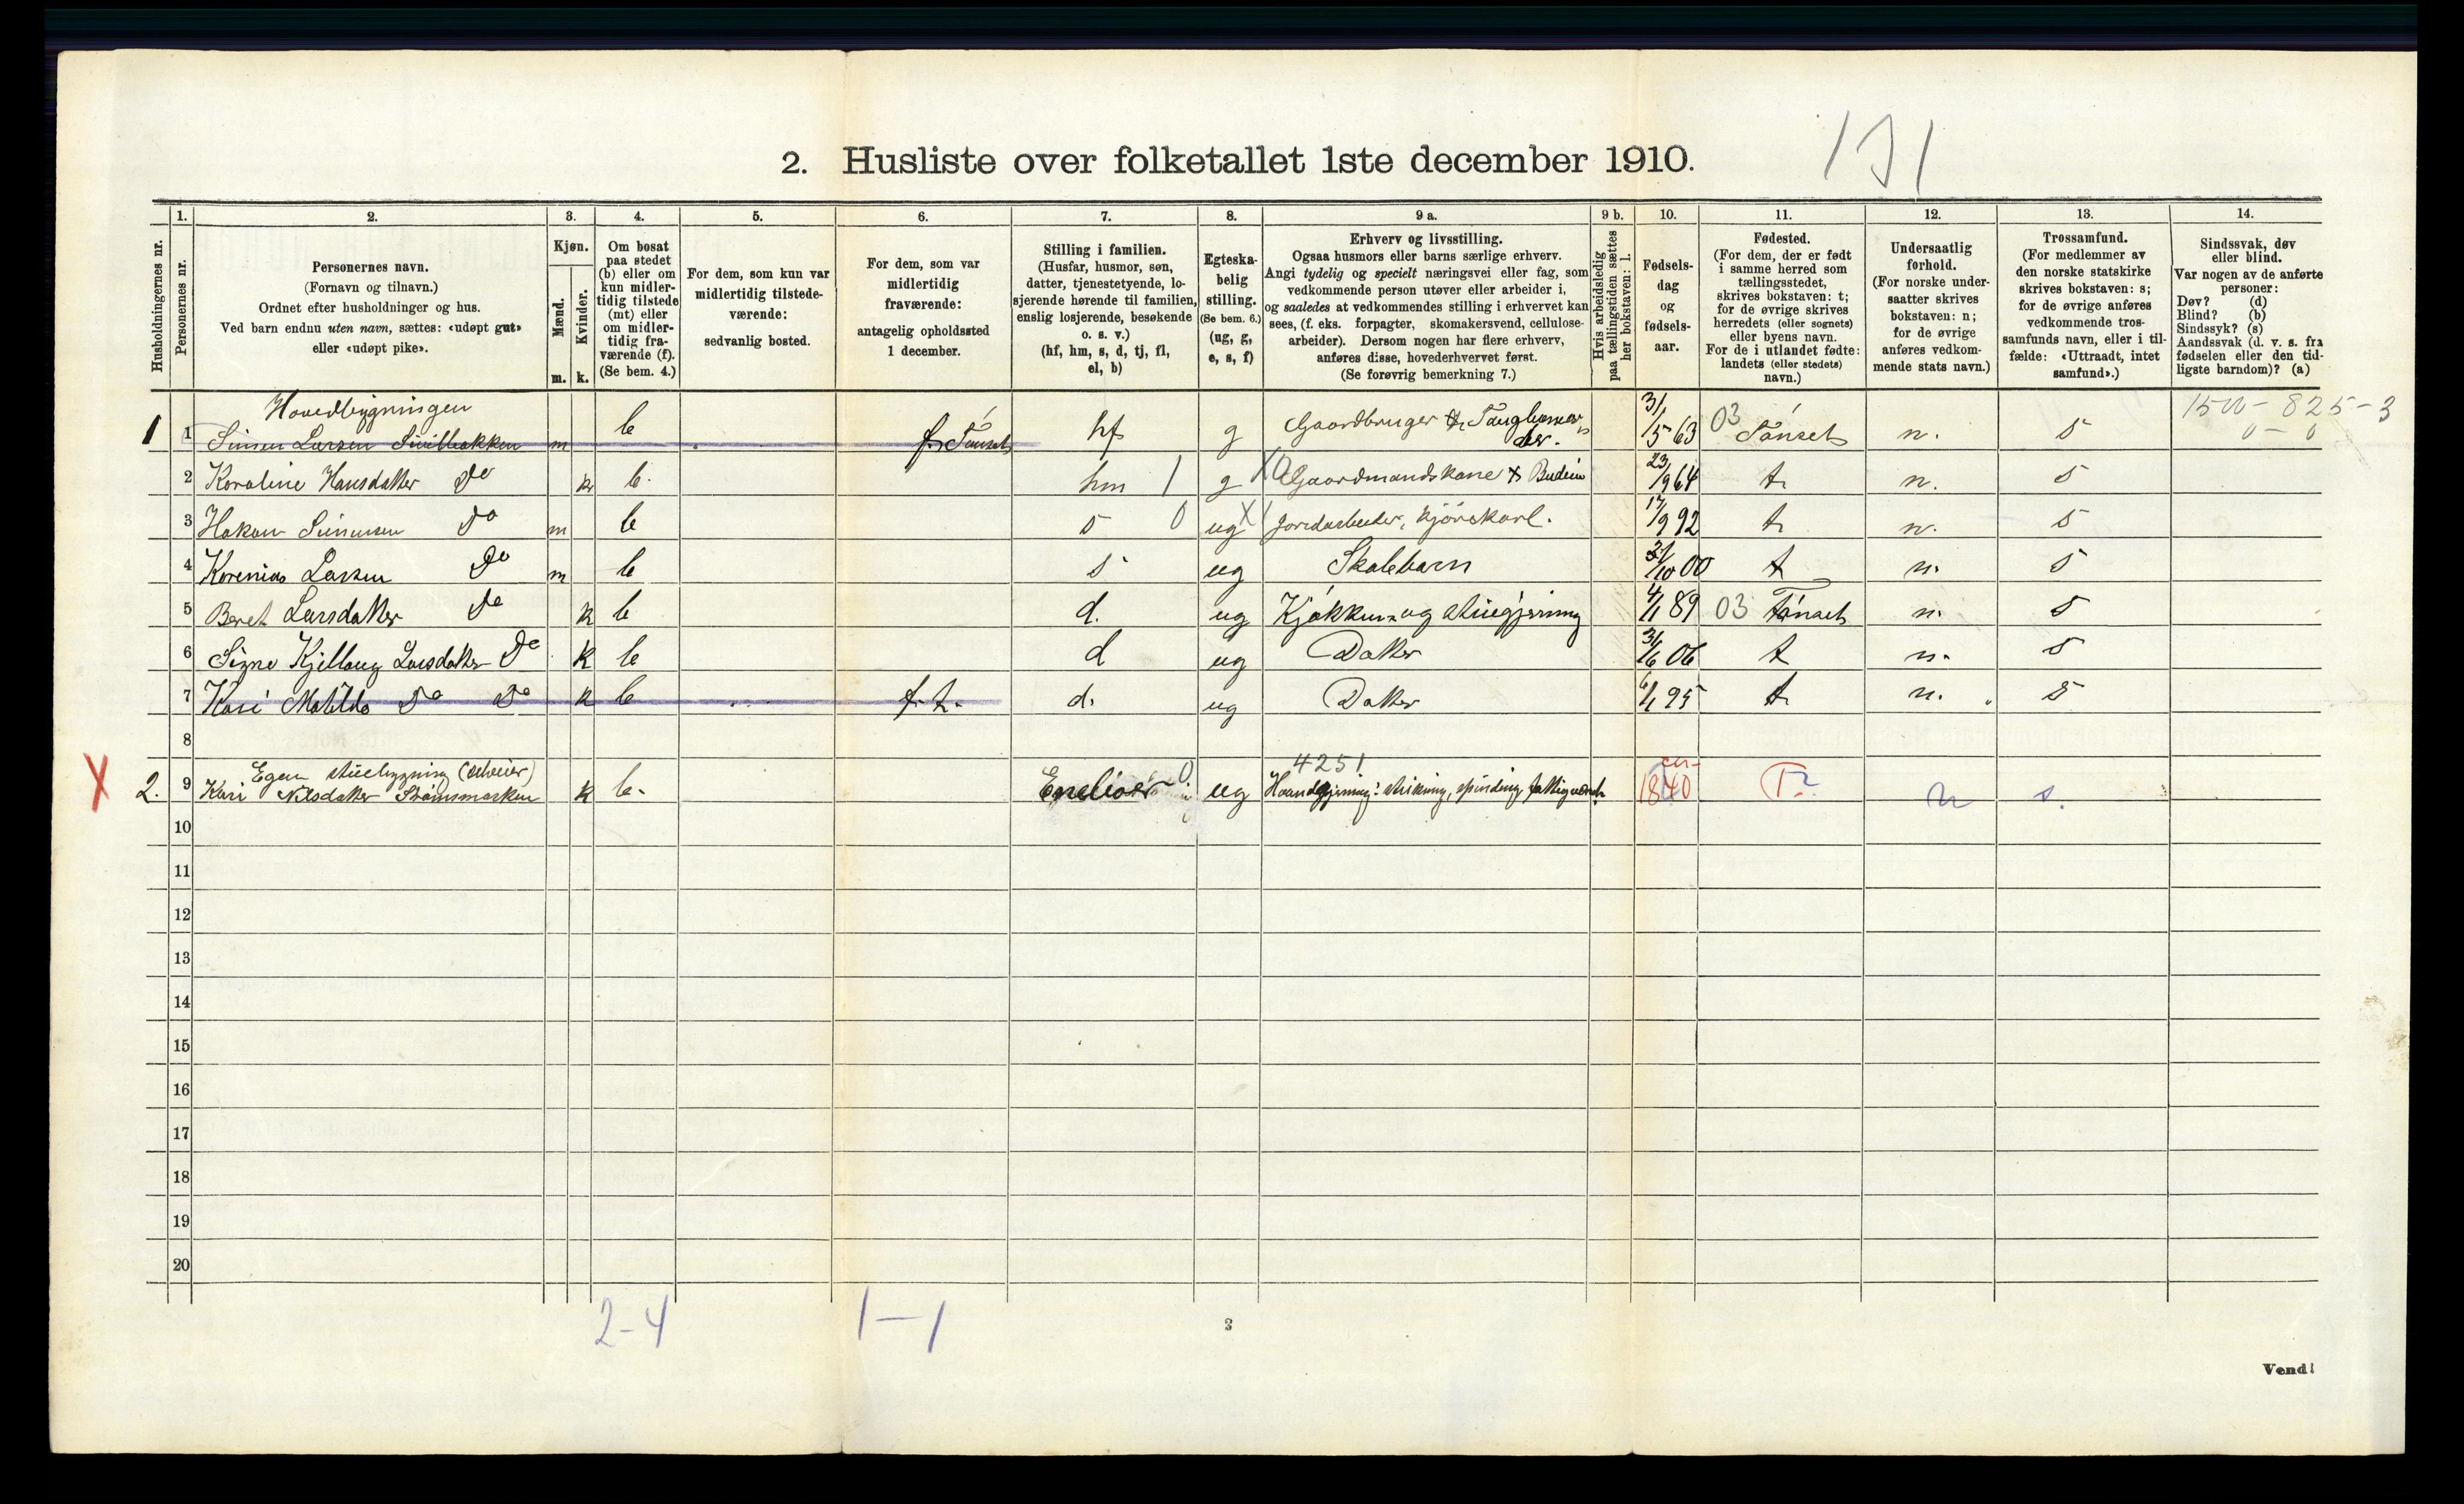 131
2. Husliste over folketallet 1ste december 1910.
Husholdningernes nr.
1.
Personernes nr.
2.
Personernes navn.
(Fornavn og tilnavn.)
Ordnet efter husholdninger og hus.
Ved barn endnu uten navn, sættes: «udøpt gut»
eller «udøpt pike».
3.
Kjøn.
Mænd.
Kvinder.
m. k.
4.
Om bosat
paa stedet
(b) eller om
kun midler-
tidig tilstede
(mt) eller
om midler-
tidig fra-
værende (f).
(Se bem. 4.)
5.
For dem, som kun var
midlertidig tilstede-
værende:
sedvanlig bosted.
6.
For dem, som var
midlertidig
fraværende:
antagelig opholdssted
1 december.
7.
Stilling i familien.
(Husfar, husmor, søn,
datter, tjenestetyende, lo-
sjerende hørende til familien,
enslig losjerende, besøkende
o. s. v.)
(hf, hm, s, d, tj, fl,
el, b)
8.
Egteska-
belig
stilling.
(Se bem. 6.)
(ug, g,
e, s, f)
9 a.
Erhverv og livsstilling.
Ogsaa husmors eller barns særlige erhverv.
Angi tydelig og specielt næringsvei eller fag, som
vedkommende person utøver eller arbeider i,
og saaledes at vedkommendes stilling i erhvervet kan
sees, (f. eks. forpagter, skomakersvend, cellulose-
arbeider). Dersom nogen har flere erhverv,
anføres disse, hovederhvervet først.
(Se forøvrig bemerkning 7.)
9 b.
Hvis arbeidsledig
paa tællingstiden sættes
her bokstaven: l.
10.
Fødsels-
dag
og
fødsels-
aar.
11.
Fødested.
(For dem, der er født
i samme herred som
tællingsstedet,
skrives bokstaven: t;
for de øvrige skrives
herredets (eller sognets)
eller byens navn.
For de i utlandet fødte:
landets (eller stedets)
navn.)
12.
Undersaatlig
forhold.
(For norske under-
saatter skrives
bokstaven: n;
for de øvrige
anføres vedkom-
mende stats navn.)
13.
Trossamfund.
(For medlemmer av
den norske statskirke
skrives bokstaven: s;
for de øvrige anføres
vedkommende tros-
samfunds navn, eller i til-
fælde: «Uttraadt, intet
samfund».)
14.
Sindssvak, døv
eller blind.
Var nogen av de anførte
personer:
Døv? (d)
Blind? (b)
Sindssyk? (s)
Aandssvak (d. v. s. fra
fødselen eller den tid-
ligste barndom)? (a)
Hovedbygningen 1500 - 825 - 3
1 1 Simen Larsen m b f. Tønset hf g Gaardbruger 31/5 63 03 Tønset n. s 0 - 0
2 Karoline Hansdatter Do k b. hm 1 g X0 Gaardmandskone Budeie 23/9 64 t. n. s
3 Hakon Simensen Do m b s 0 ug X1 Jordarbeider, kjørekarl. 17/9 92 t. n. s
4 Larsen Do m b s ug Skolebarn /10 00 t n. s
5 Beret Larsdatter Do k b d. ug Kjøkken- og stuegjerning 4/1 89 03 Tønset n. s
6 Signe Kjellaug Larsdatter Do k b d ug Datter 31/6 06 t n. s
7 Kari Matilde Do Do k b f. t. d. ug Datter 6/1 95 t. n. s
8
Egen stuebygning 4251
2. 9 Kari Nilsdatter Strømsmarken k b. 0 ug Haandgjerning: strikning, spinding, 1840 T? n s.
10
11
12
13
14
15
16
17
18
19
20
2-4 1-1
3
Vend!